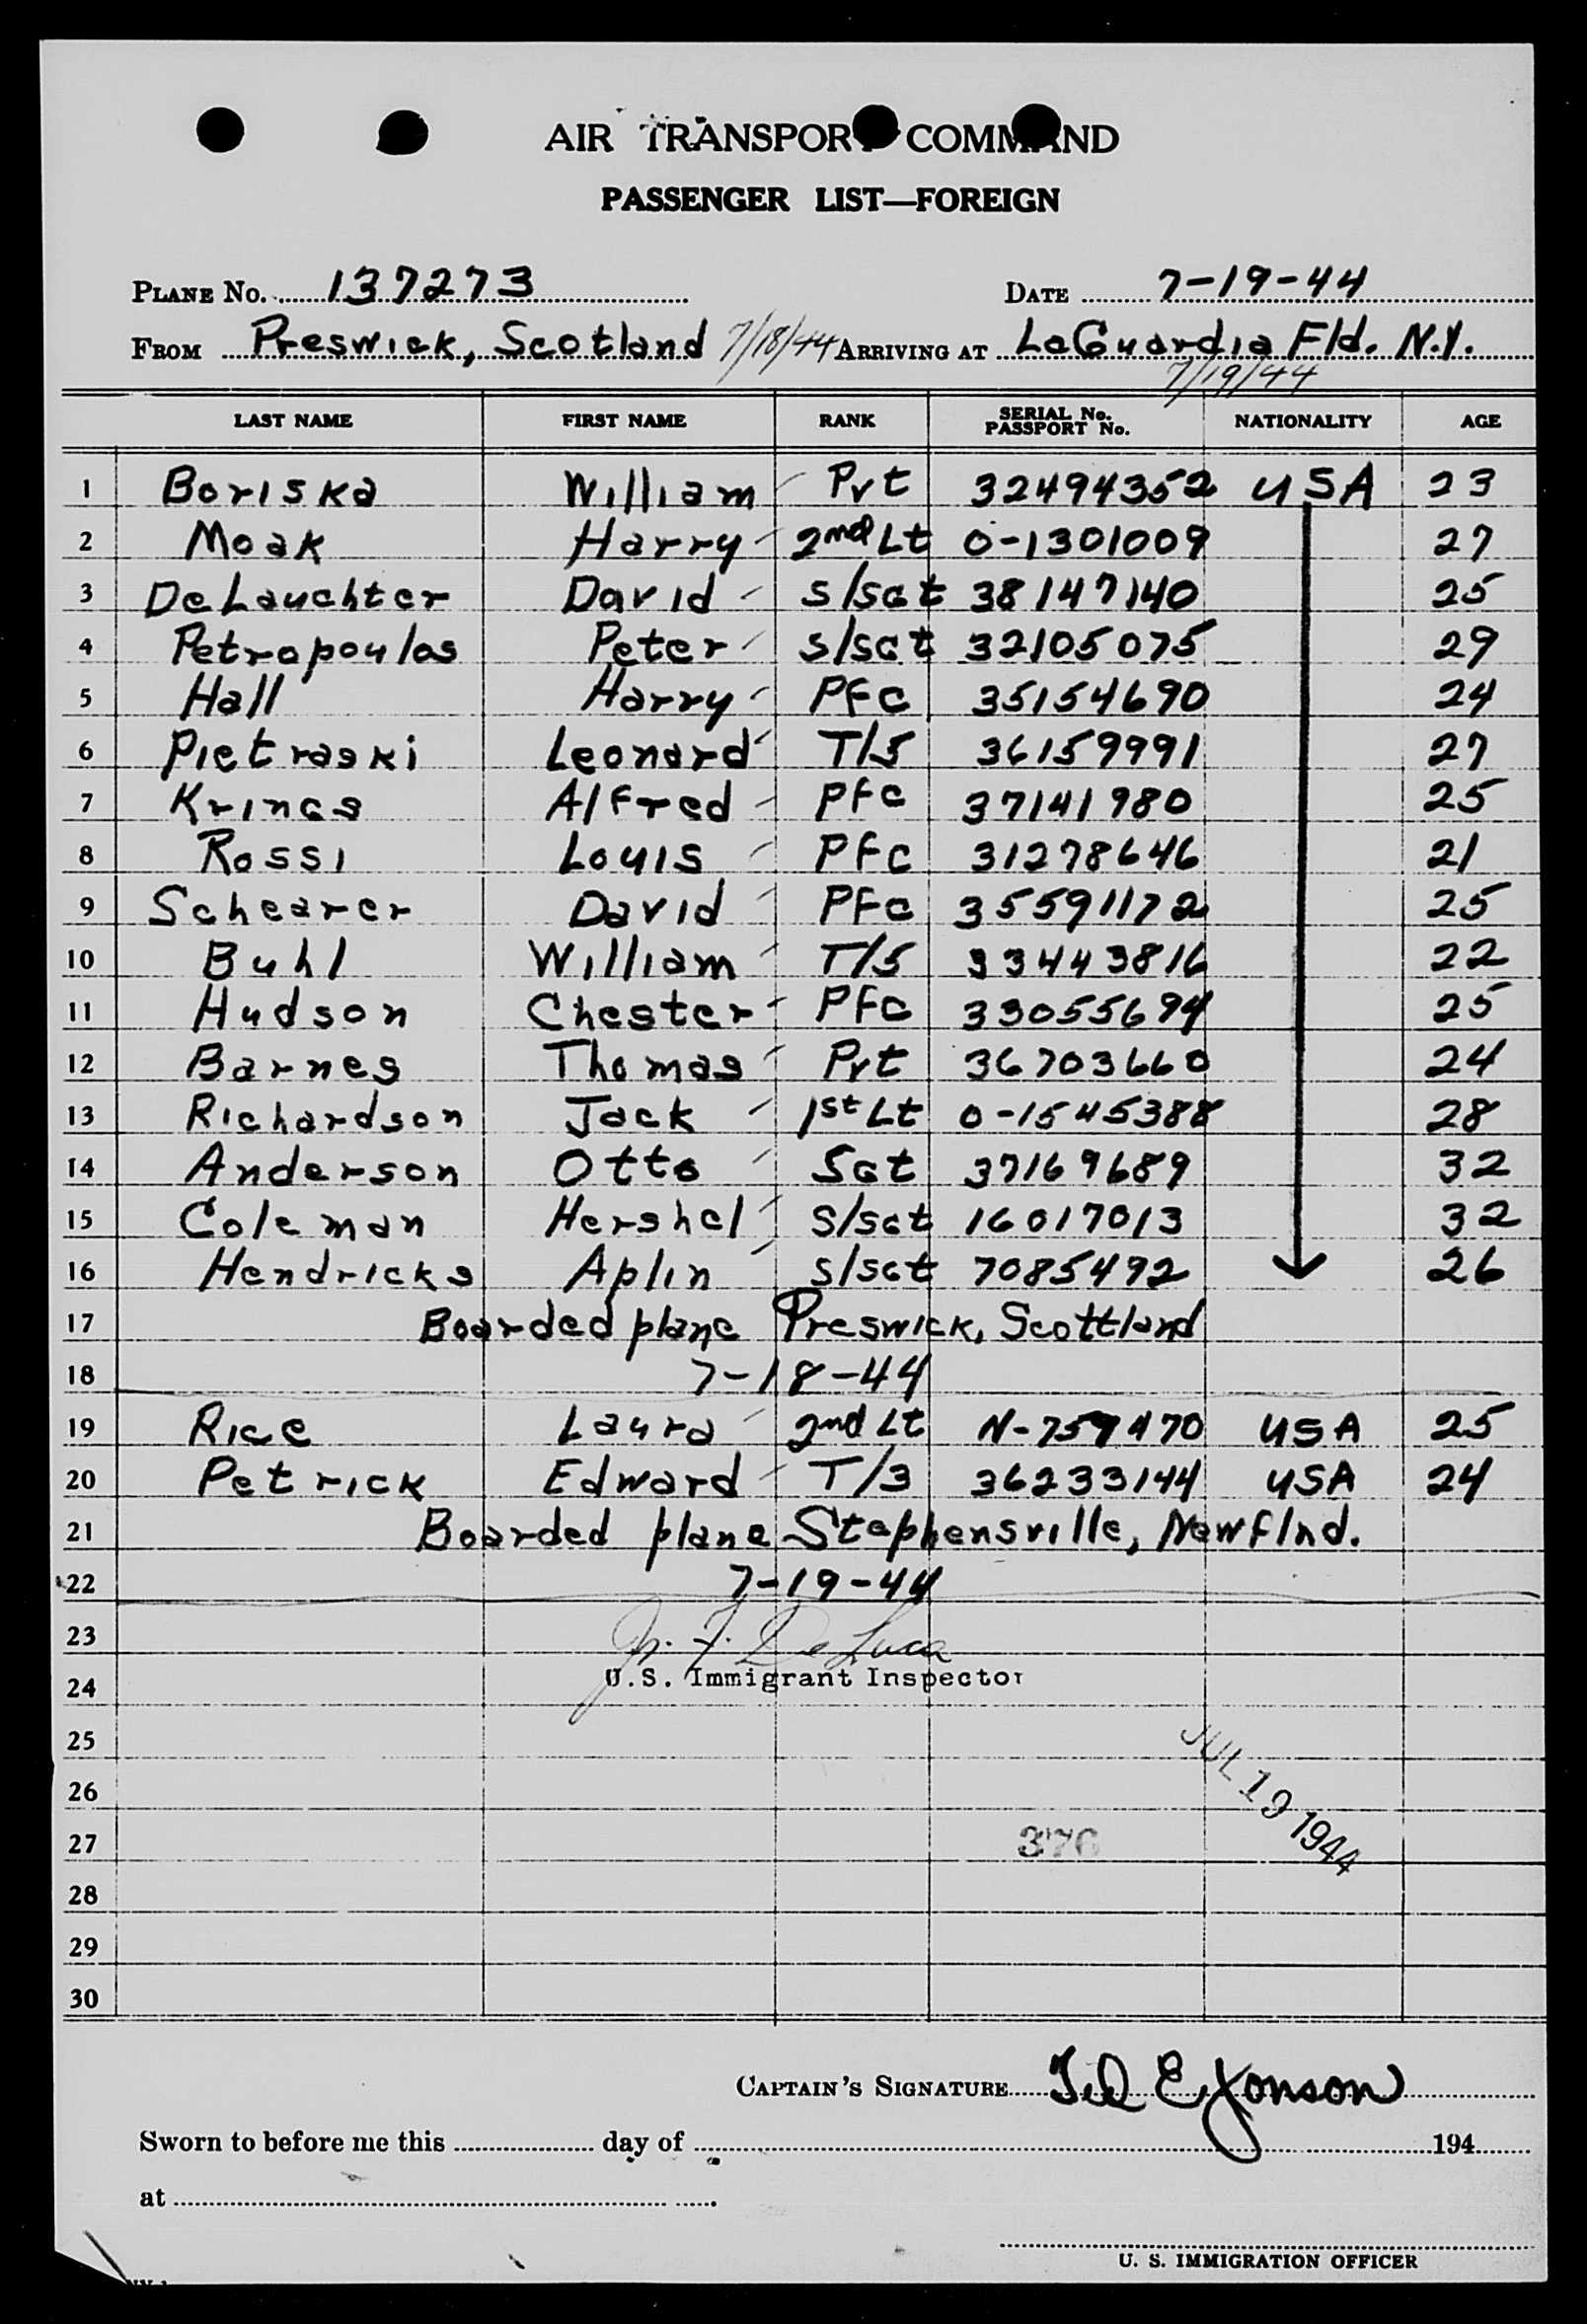 AIR TRANSPORT COMMAND
PASSENGER LIST—FOREIGN
PLANE No. 137273 DATE 7-19-44
FROM Preswick, Scotland 7/18/44 ARRIVING AT LaGuardia Fld. N.Y.
7/19/44
LAST NAME FIRST NAME RANK SERIAL No. PASSPORT No. NATIONALITY AGE
1 Boriska William Pvt 32494352 USA 23
2 Moak Harry 2nd Lt O-1301009 27
3 DeLaughter David S/Sgt 38147140 25
4 Petropoulos Peter S/Sgt 32105075 29
5 Hall Harry Pfc 35154690 24
6 Pietraski Leonard T/5 36159991 27
7 Krings Alfred Pfc 37141980 25
8 Rossi Louis Pfc 31278646 21
9 Schearer David Pfc 35591172 25
10 Buhl William T/5 33443816 22
11 Hudson Chester Pfc 33055694 25
12 Barnes Thomas Pvt 36703660 24
13 Richardson Jack 1st Lt O-1545388 28
14 Anderson Otto Sgt 37169689 32
15 Coleman Hershel S/Sgt 16017013 32
16 Hendricks Aplin S/Sgt 7085492 26
17 Boarded plane Preswick, Scottland
18 7-18-44
19 Rice Laura 2nd Lt N-759470 USA 25
20 Petrick Edward T/3 36233144 USA 24
21 Boarded plane Stephensville, Newflnd.
22 7-19-44
23 De Luca
24 U.S. Immigrant Inspector
25
26 JUL 19 1944
27 376
28
29
30
CAPTAIN'S SIGNATURE Ted E Jonson
Sworn to before me this day of 194
at
U. S. IMMIGRATION OFFICER